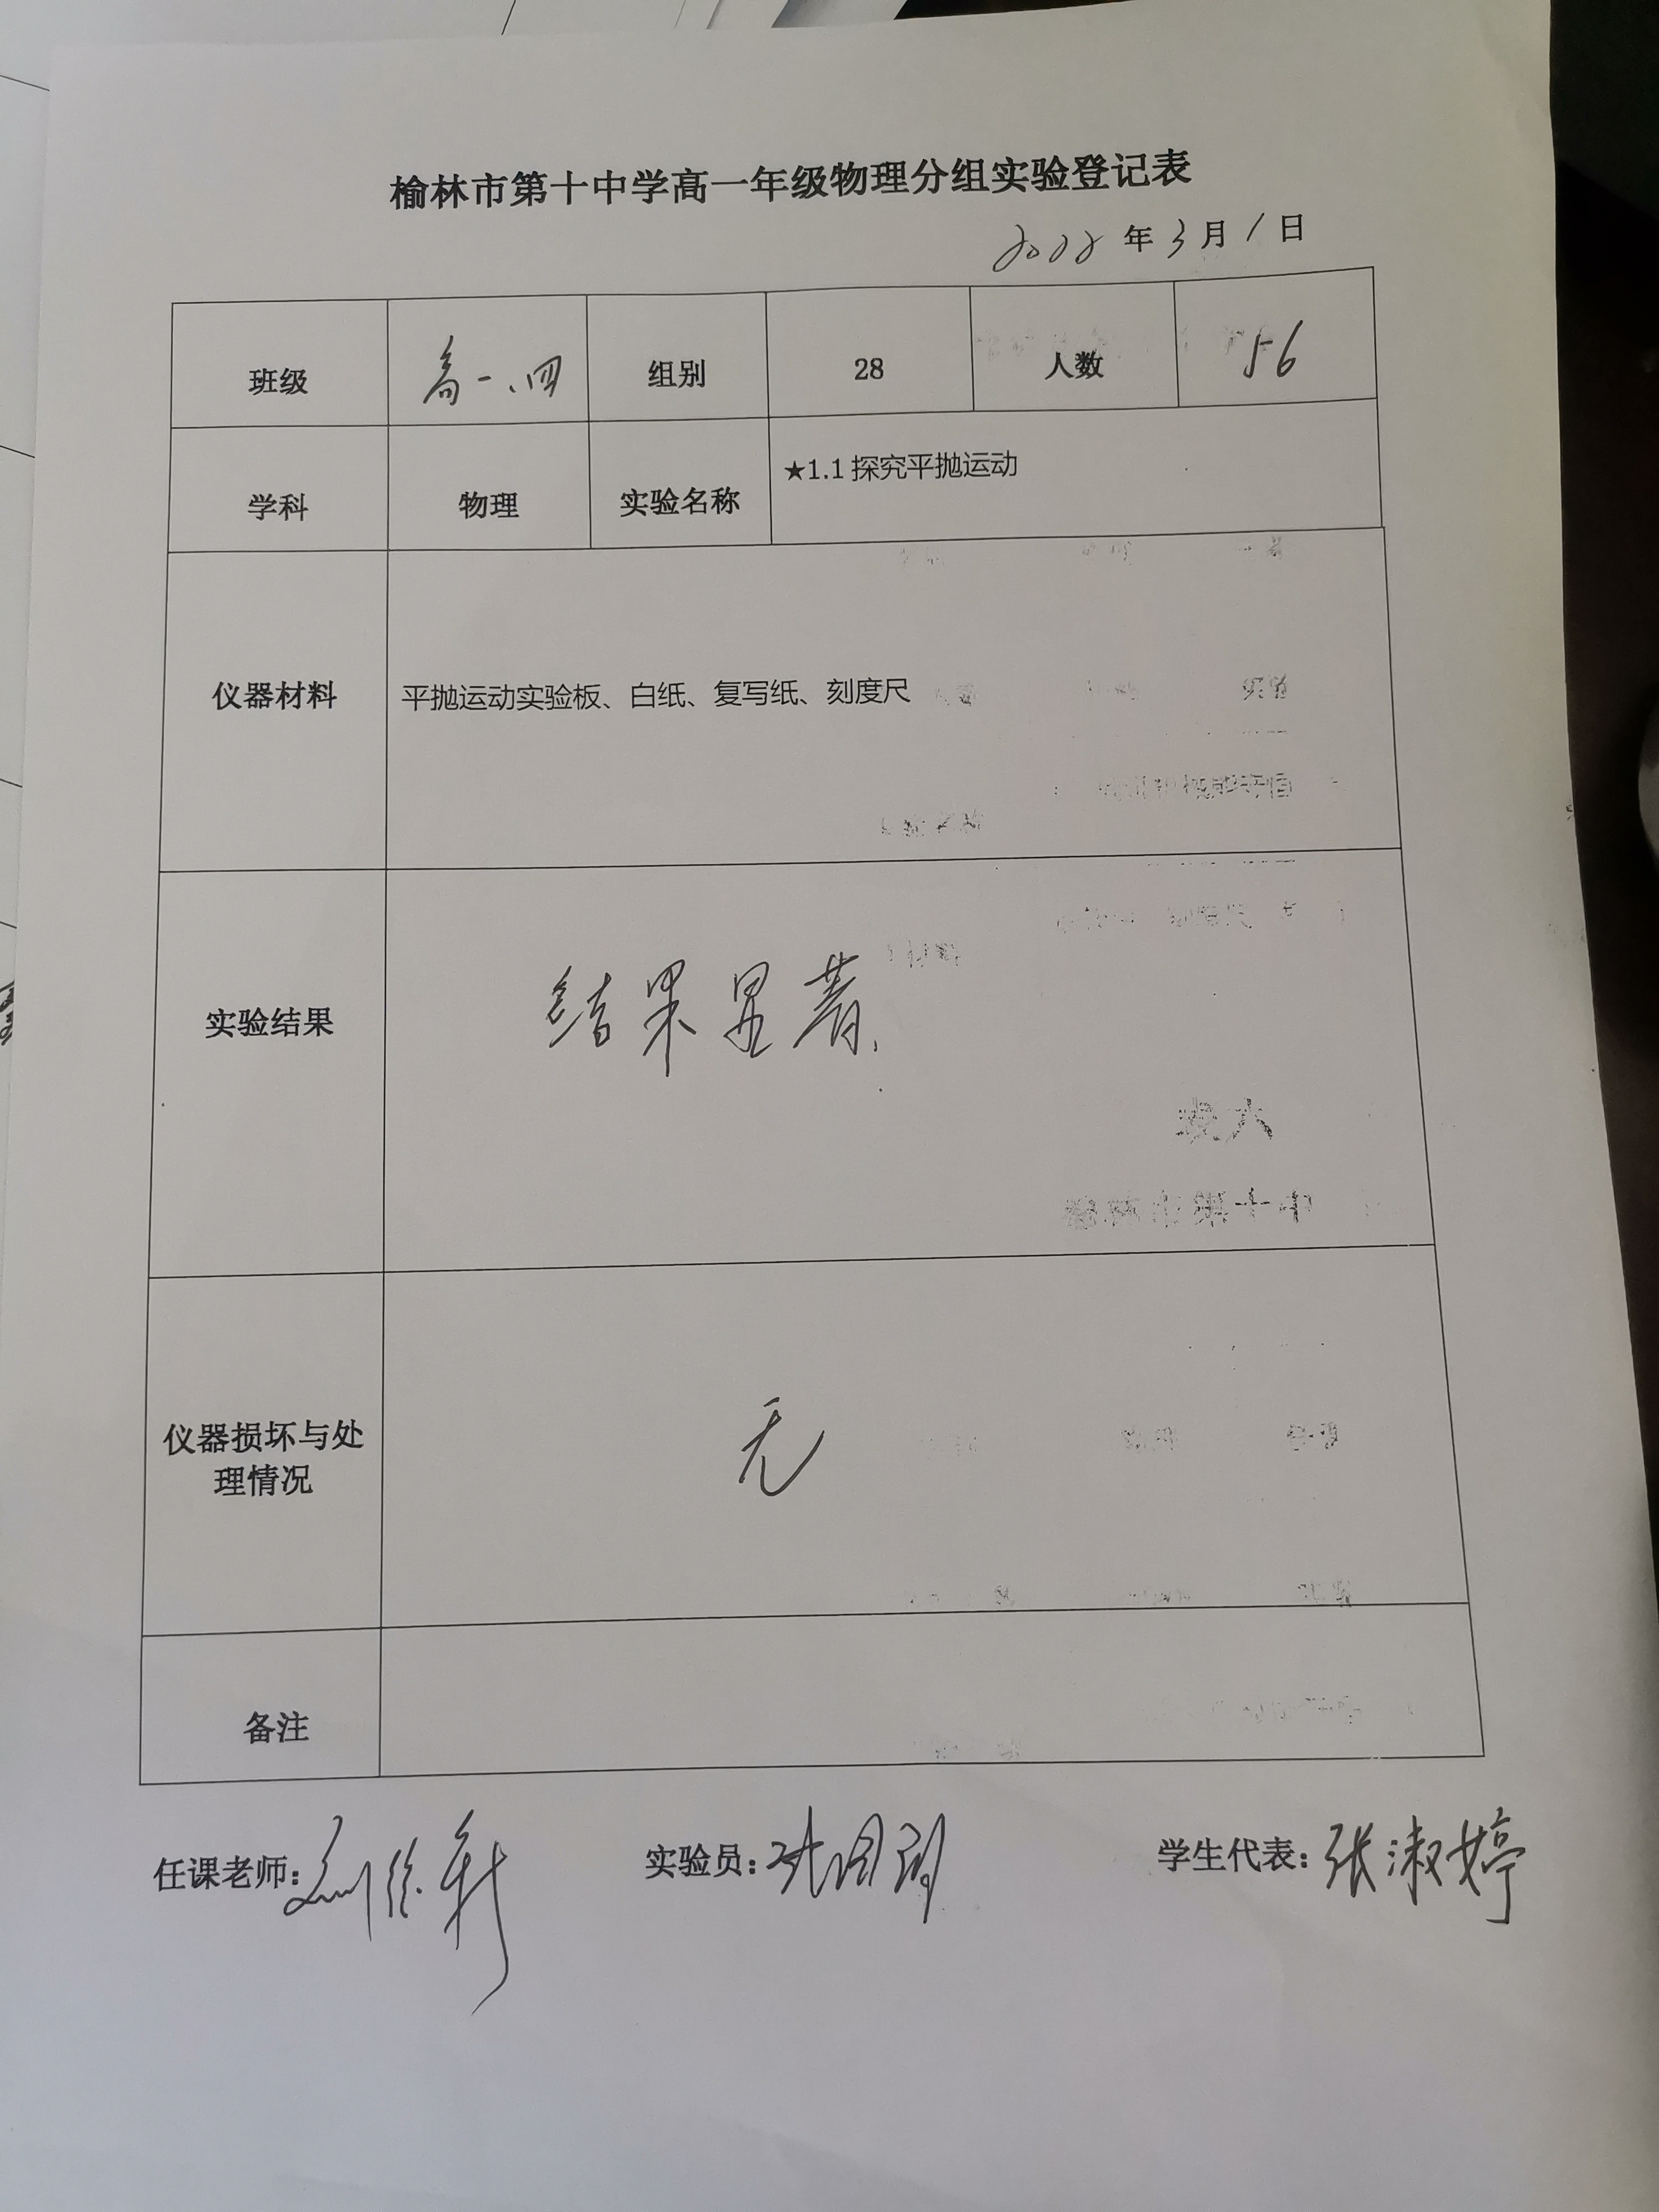 榆林市第十中学高一年级物理分组实验登记表
2022年3月1日
班级 高一、四 组别 28 人数 56
学科 物理 实验名称 ★1.1探究平抛运动
仪器材料 平抛运动实验板、白纸、复写纸、刻度尺
实验结果 结果显著.
仪器损坏与处
理情况 无
备注
任课老师: 实验员: 学生代表:张淑婷